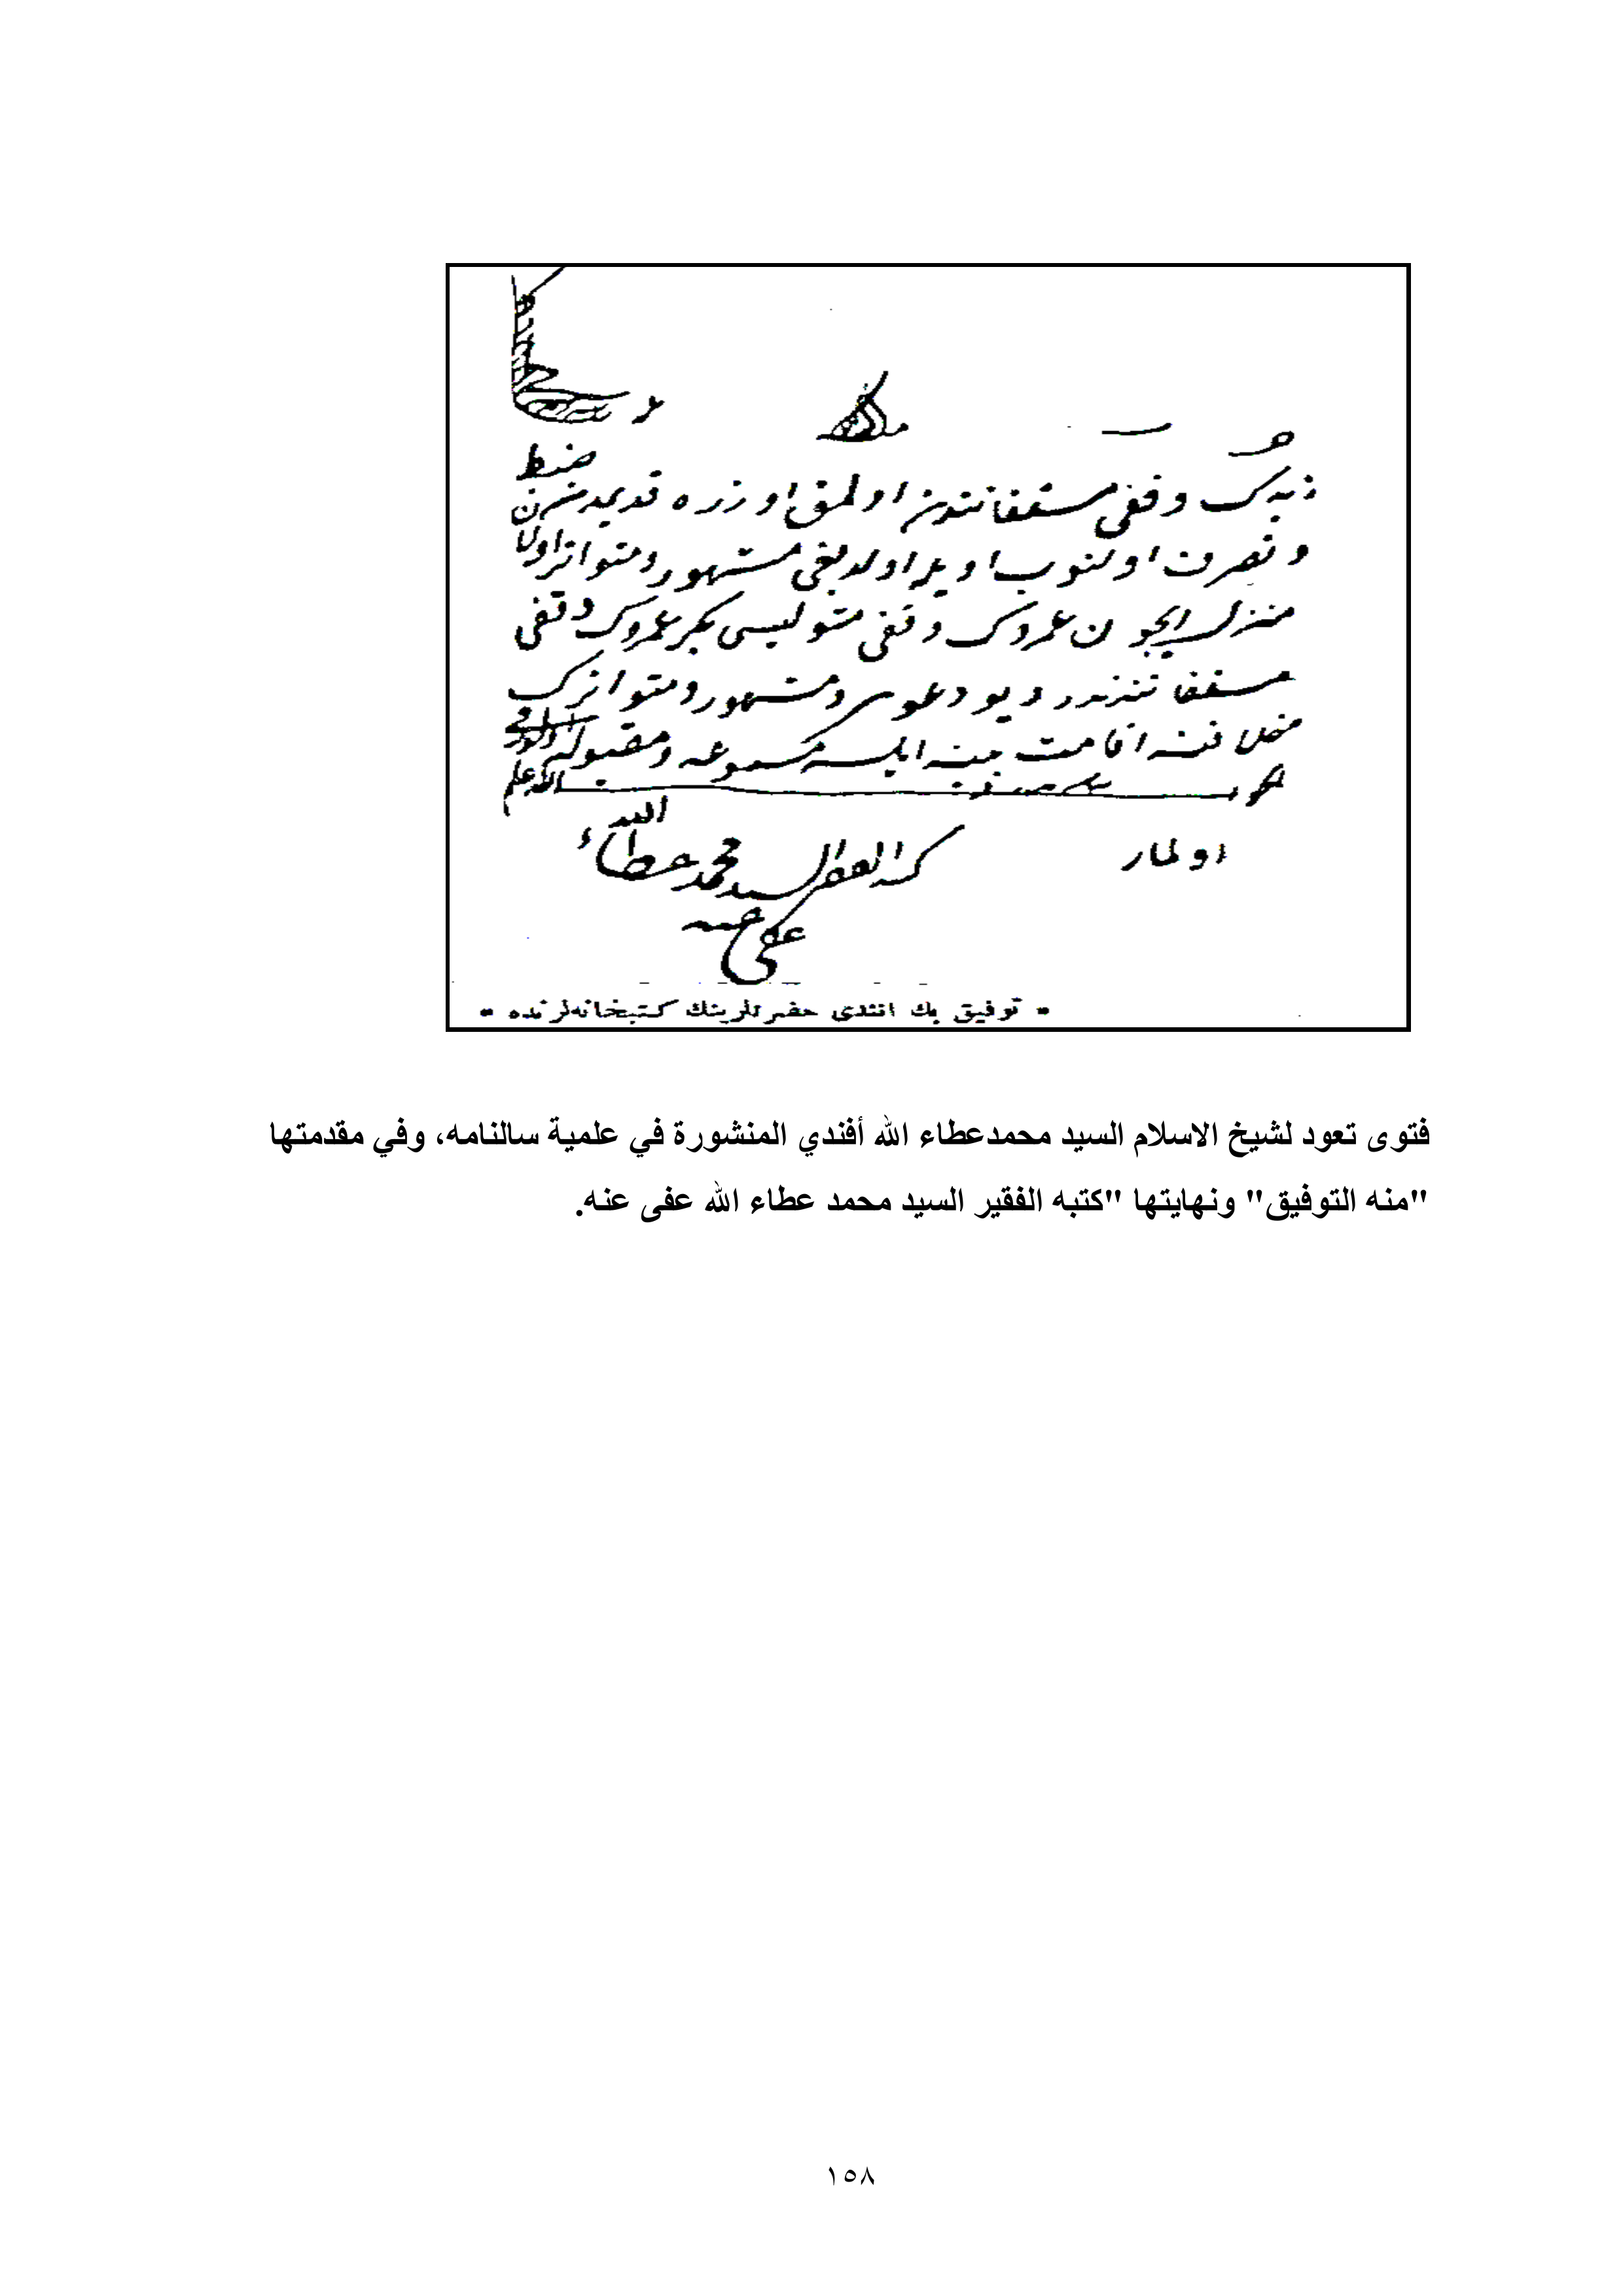 زيدك وقفى مسقفاتندن اولمق اوزره قديمدن ضبط
وتصرف اولنوب اويله اولديغى مشهور ومتواتر اولان
منزل ايچون عمروك وقفى متوليسى بكر عمروك وقفى
مسقفاتندندر ديو دعوى ومشهور ومتواترك
خلافنه اقامت بينه ايلسه مسموعه ومقبوله اولورمى
الجواب الله اعلم
اولماز
كتبه الفقير السيد محمد عطاء الله
عفى عنه
« توفيق بك افندى حضرتلرينك كتبخانه‌لرنده »
فتوى تعود لشيخ الاسلام السيد محمدعطاء الله أفندي المنشورة في علمية سالنامه، وفي مقدمتها
"منه التوفيق" ونهايتها "كتبه الفقير السيد محمد عطاء الله عفى عنه.
١٥٨